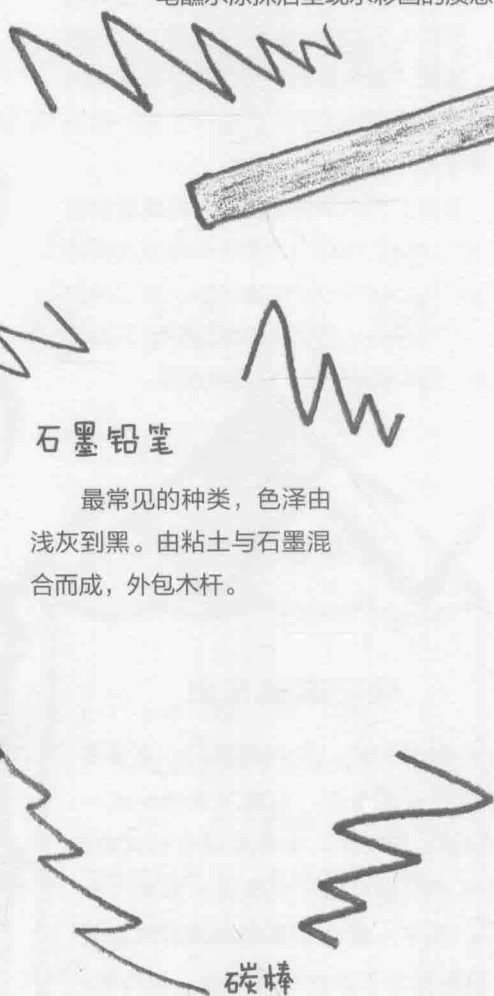 石墨铅笔
最常见的种类，色泽由
浅灰到黑。由粘土与石墨混
合而成，外包木杆。
碳棒